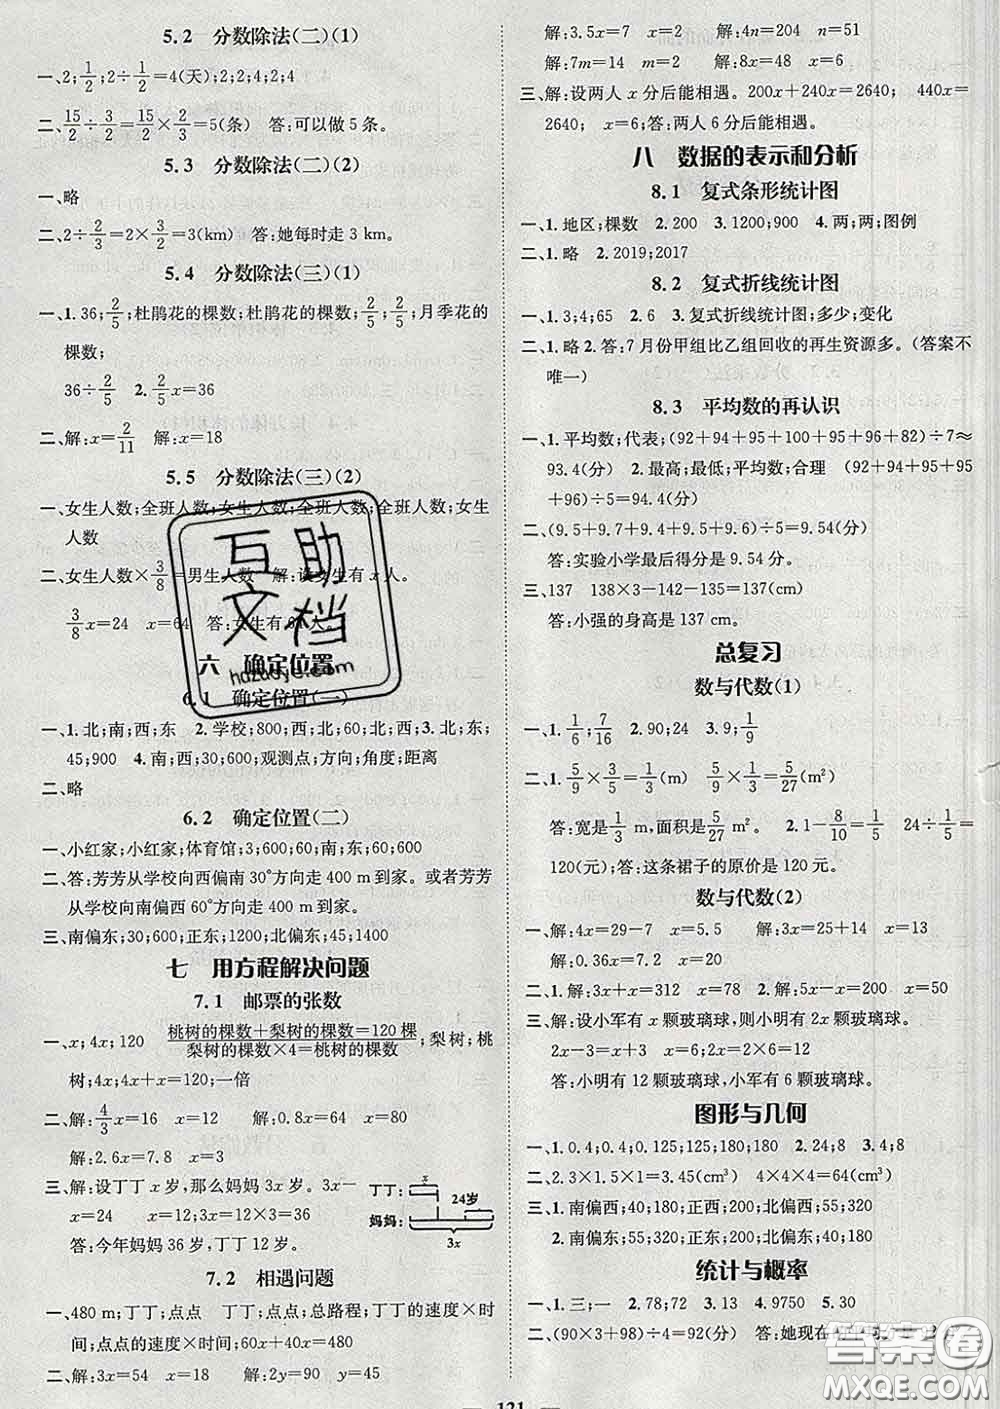 5.2 分数除法(二)(1)
一、2;1/2;2÷1/2=4(天);2;2;4;2;4
二、15/2÷3/2=15/2×2/3=5(条) 答:可以做5条。
5.3 分数除法(二)(2)
一、略
二、2÷2/3=2×3/2=3(km) 答:她每时走3 km。
5.4 分数除法(三)(1)
一、1.36;2/5;杜鹃花的棵数;杜鹃花的棵数;2/5;2/5;月季花的
棵数;
36÷2/5 2.2/5x=36
二、解:x=2/11 解:x=18
5.5 分数除法(三)(2)
一、女生人数;全班人数;女生人数;全班人数;全班人数;女生
人数
二、女生人数×3/8=男生人数 解:设女生有x人。
3/8x=24 x=64 答:女生有64人。
六 确定位置
6.1 确定位置(一)
一、1.北;南;西;东 2.学校;800;西;北;60;北;西 3.北;东;
45;900 4.南;西;30;600;观测点;方向;角度;距离
二、略
6.2 确定位置(二)
一、小红家;小红家;体育馆;3;600;60;南;东;60;600
二、答:芳芳从学校向西偏南30°方向走400 m到家。或者芳芳
从学校向南偏西60°方向走400 m到家。
三、南偏东;30;600;正东;1200;北偏东;45;1400
七 用方程解决问题
7.1 邮票的张数
一、x;4x;120 桃树的棵数+梨树的棵数=120棵
梨树的棵数×4=桃树的棵数;梨树;桃
树;4x;4x+x=120;一倍
二、解:4/3x=16 x=12 解:0.8x=64 x=80
解:2.6x=7.8 x=3
三、解:设丁丁x岁,那么妈妈3x岁。3x-
x=24 x=12 12×3=36
答:今年妈妈36岁,丁丁12岁。
丁丁: x 24岁
妈妈: 3x
7.2 相遇问题
一、480 m;丁丁;点点 丁丁;点点;总路程;丁丁的速度×时
间;点点的速度×时间;60x+40x=480
二、解:3x=54 x=18 解:2y=90 y=45
解:3.5x=7 x=2 解:4n=204 n=51
解:7m=14 m=2 解:8x=48 x=6
三、解:设两人x分后能相遇。200x+240x=2640; 440x=
2640; x=6;答:两人6分后能相遇。
八 数据的表示和分析
8.1 复式条形统计图
一、1.地区;棵数 2.200 3.1200;900 4.两;两;图例
二、1.略 2.2019;2017
8.2 复式折线统计图
一、1.3;4;65 2.6 3.复式折线统计图;多少;变化
二、1.略 2.答:7月份甲组比乙组回收的再生资源多。(答案不
唯一)
8.3 平均数的再认识
一、1.平均数;代表;(92+94+95+100+95+96+82)÷7≈
93.4(分) 2.最高;最低;平均数;合理 (92+94+95+95
+96)÷5=94.4(分)
二、(9.5+9.6+9.5+9.5+9.6)÷5=9.54(分)
答:实验小学最后得分是9.54分。
三、137 138×3-142-135=137(cm)
答:小强的身高是137 cm。
总复习
数与代数(1)
一、1.1/6;7/16 2.90;24 3.9;1/9
二、1.5/9×3/5=1/3(m) 5/9×1/3=5/27(m²)
答:宽是1/3 m,面积是5/27 m²。 2.1-8/10=1/5 24÷1/5=
120(元);答:这条裙子的原价是120元。
数与代数(2)
一、解:4x=29-7 x=5.5 解:3x=25+14 x=13
解:0.36x=7.2 x=20
二、1.解:3x+x=312 x=78 2.解:5x-x=200 x=50
三、解:设小军有x颗玻璃球,则小明有2x颗玻璃球。
2x-3=x+3 x=6 2x=2×6=12
答:小明有12颗玻璃球,小军有6颗玻璃球。
图形与几何
一、1.0.4;0.4;0.125;125;180;180 2.24;8 3.4;8
二、2.3×1.5×1=3.45(cm³) 4×4×4=64(cm³)
三、1.南偏西;40;180;正西;200;北偏西;55;320
2.南偏东;55;320;正东;200;北偏东;40;180
统计与概率
一、1.三;一 2.78;72 3.13 4.9750 5.30
二、(90×3+98)÷4=92(分) 答:她现在
121
互助文档
hdzuoye.com
答案圈
MXQE.COM